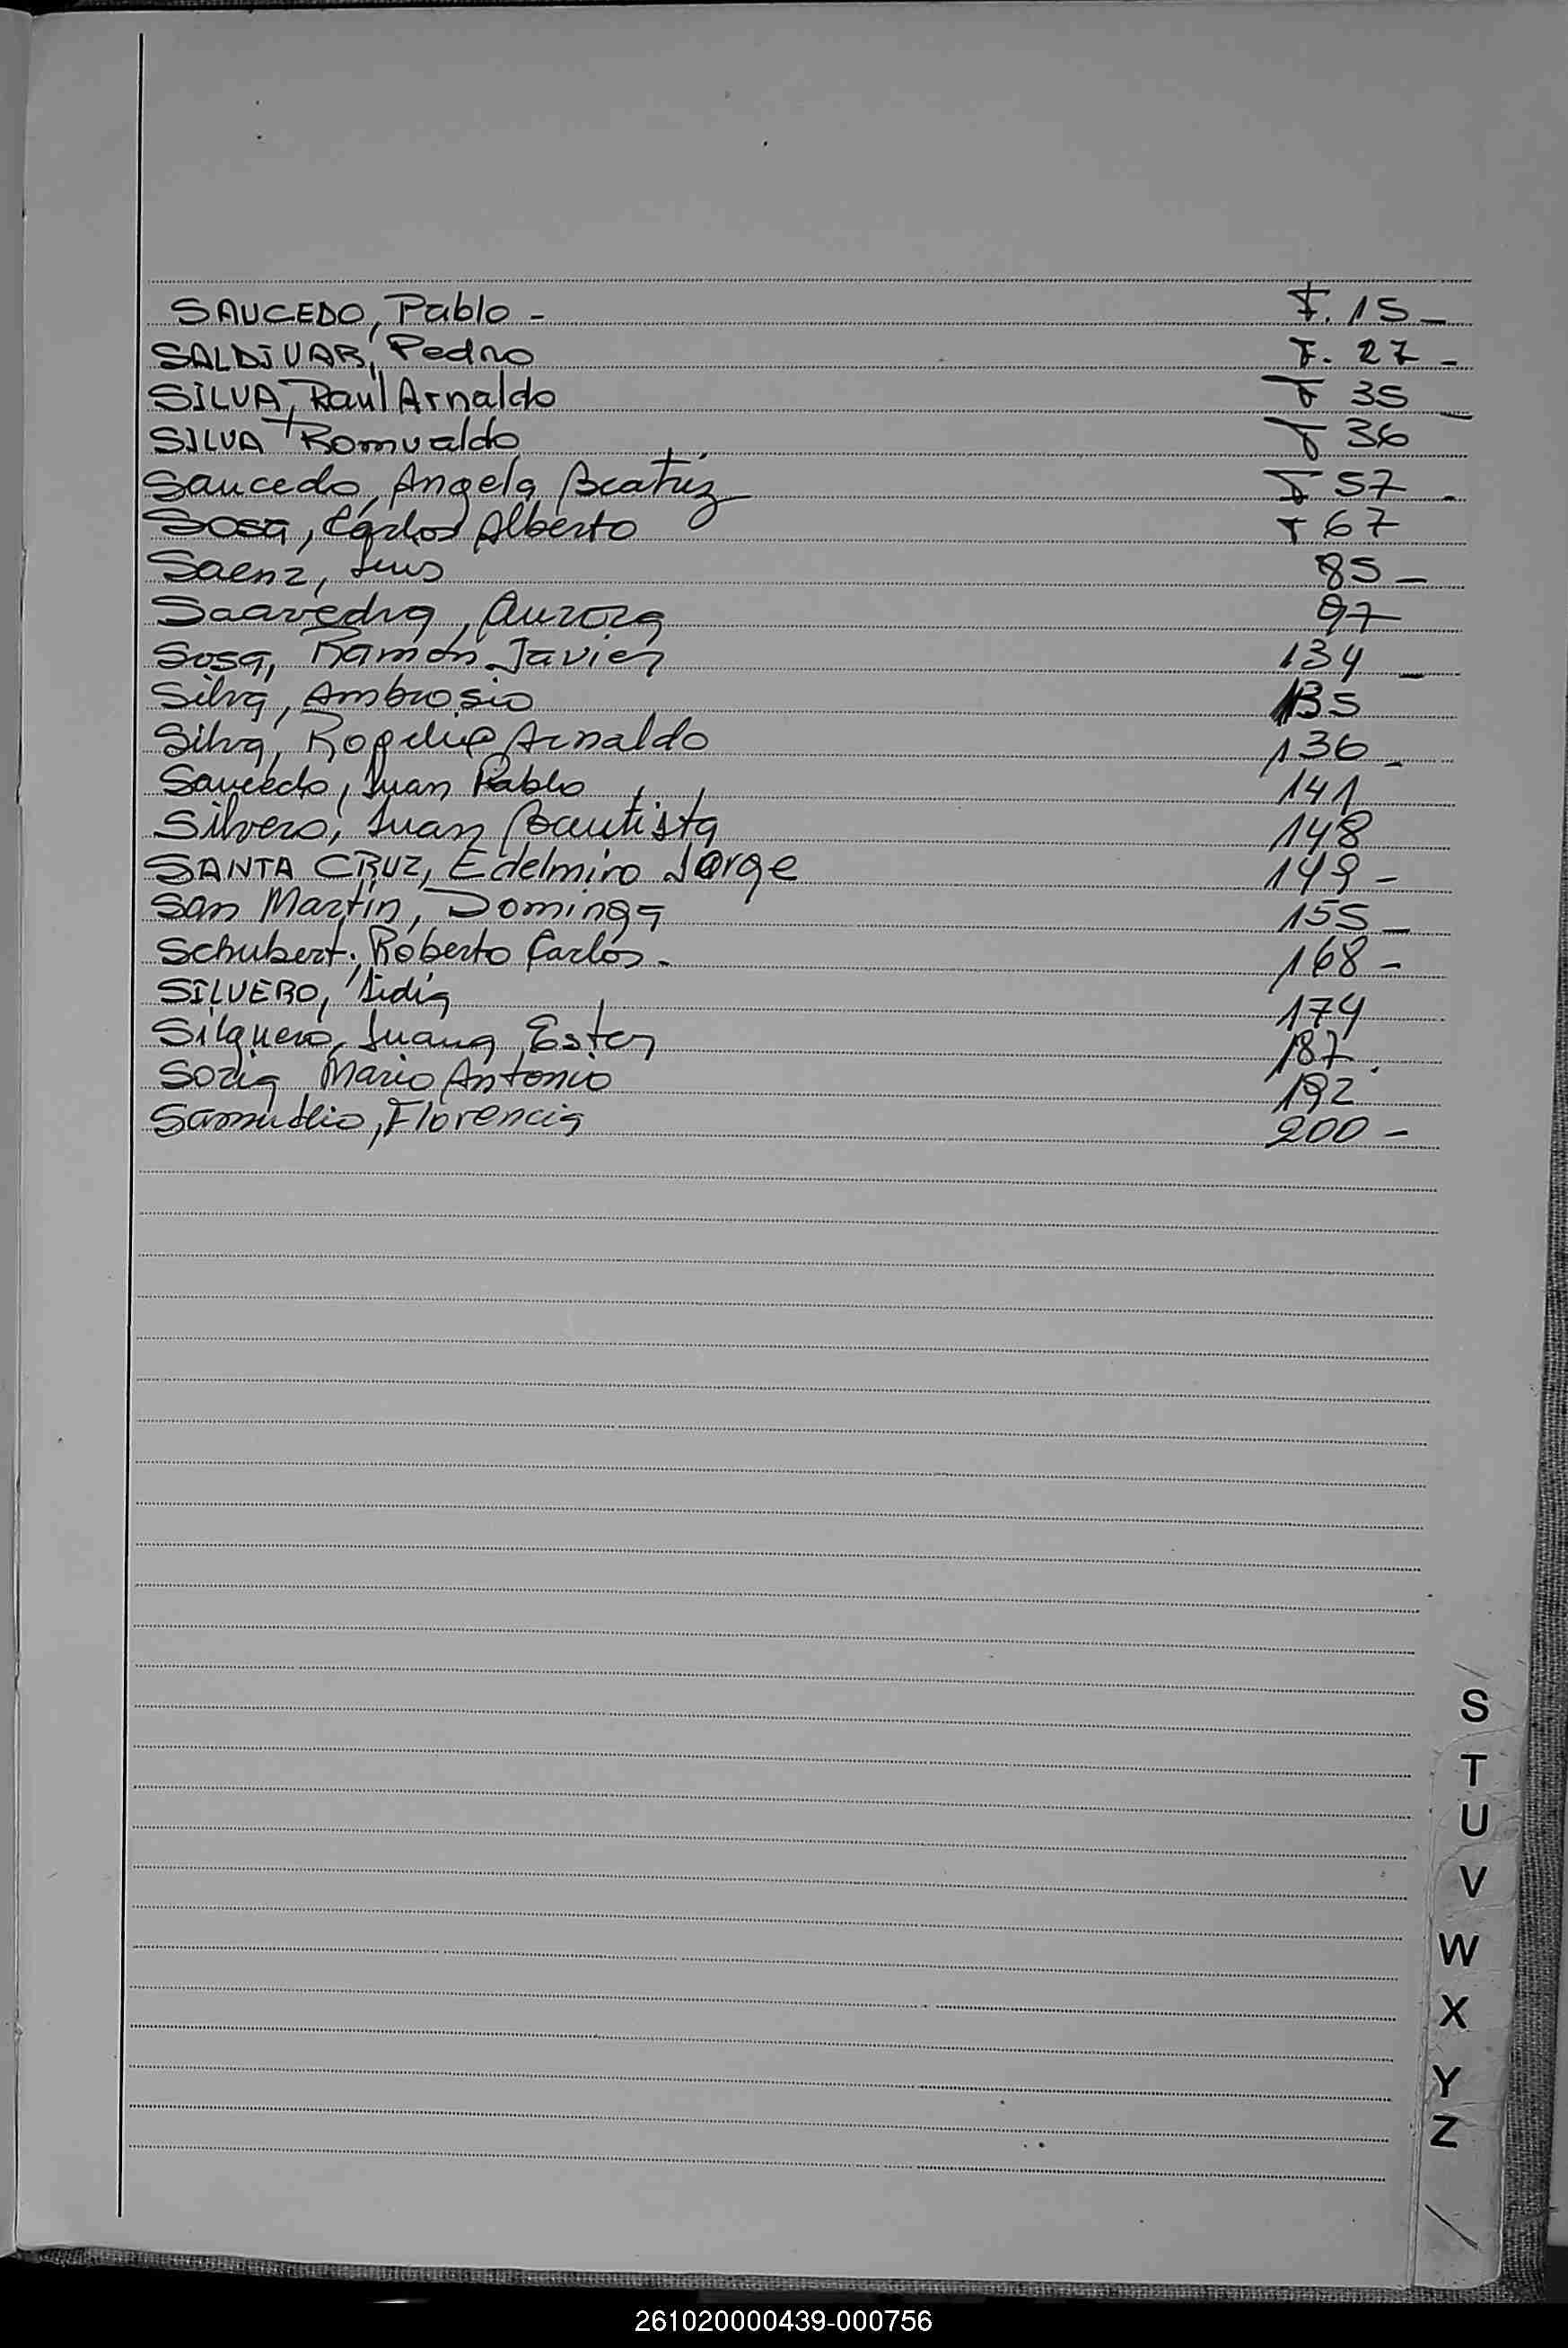 SAUCEDO, Pablo - F. 15 -
SALDIVAR, Pedro F. 27 -
SILVA, Raul Arnaldo F 35 -
SILVA Romualdo F 36
Saucedo, Angela Beatriz F 57 -
Sosa, Carlos Alberto F 67
Saenz, Luis 85 -
Saavedra, Aurora 97
Sosa, Ramón Javier 134 -
Silva, Ambrosio 135
Silva, Rogelio Arnaldo 136 -
Saucedo, Juan Pablo 141
Silvero, Juan Bautista 148
SANTA CRUZ, Edelmiro Jorge 149 -
San Martín, Dominga 155 -
Schubert, Roberto Carlos - 168 -
SILVERO, Lidia 174
Silguero, Juana Ester 187.
Soria Mario Antonio 192
Samudio, Florencia 200 -
S
T
U
V
W
X
Y
Z
261020000439-000756